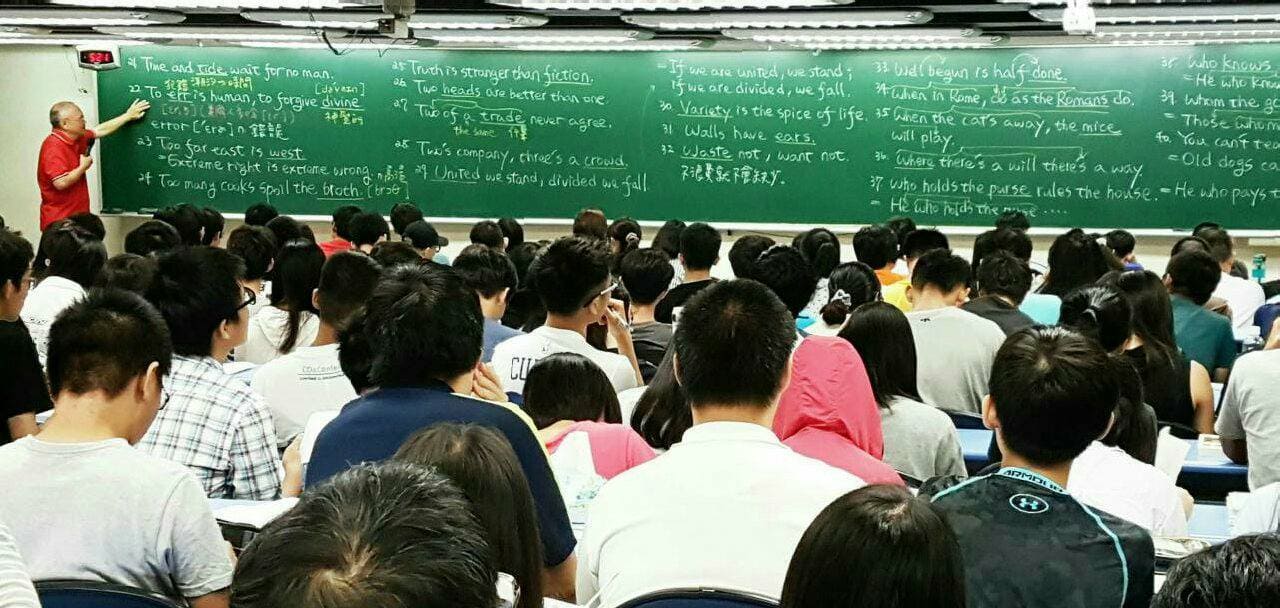 521
21 Time and tide wait for no man.
22 To err is human, to forgive divine
神聖的
error [ˈɛrɚ] n 錯誤
23 Too far east is west
=Extreme right is extreme wrong.
24 Too many cooks spoil the broth.
25 Truth is stranger than fiction.
26 Two heads are better than one.
27 Two of a trade never agree.
the same 行業
28 Two's company, three's a crowd.
29 United we stand, divided we fall
=If we are united, we stand;
if we are divided, we fall.
30 Variety is the spice of life.
31 Walls have ears.
32 Waste not, want not.
不浪費就不會缺少.
33 Well begun is half done.
34 when in Rome, do as the Romans do.
35 when the cat's away, the mice
will play.
36 where there's a will there's a way
37 who holds the purse rules the house.
= He who holds the purse ....
= He who pays t
38 who knows
= He who know
39 whom the go
= Those whom
40 You can't tea
= Old dogs ca
CU
ARMOUR